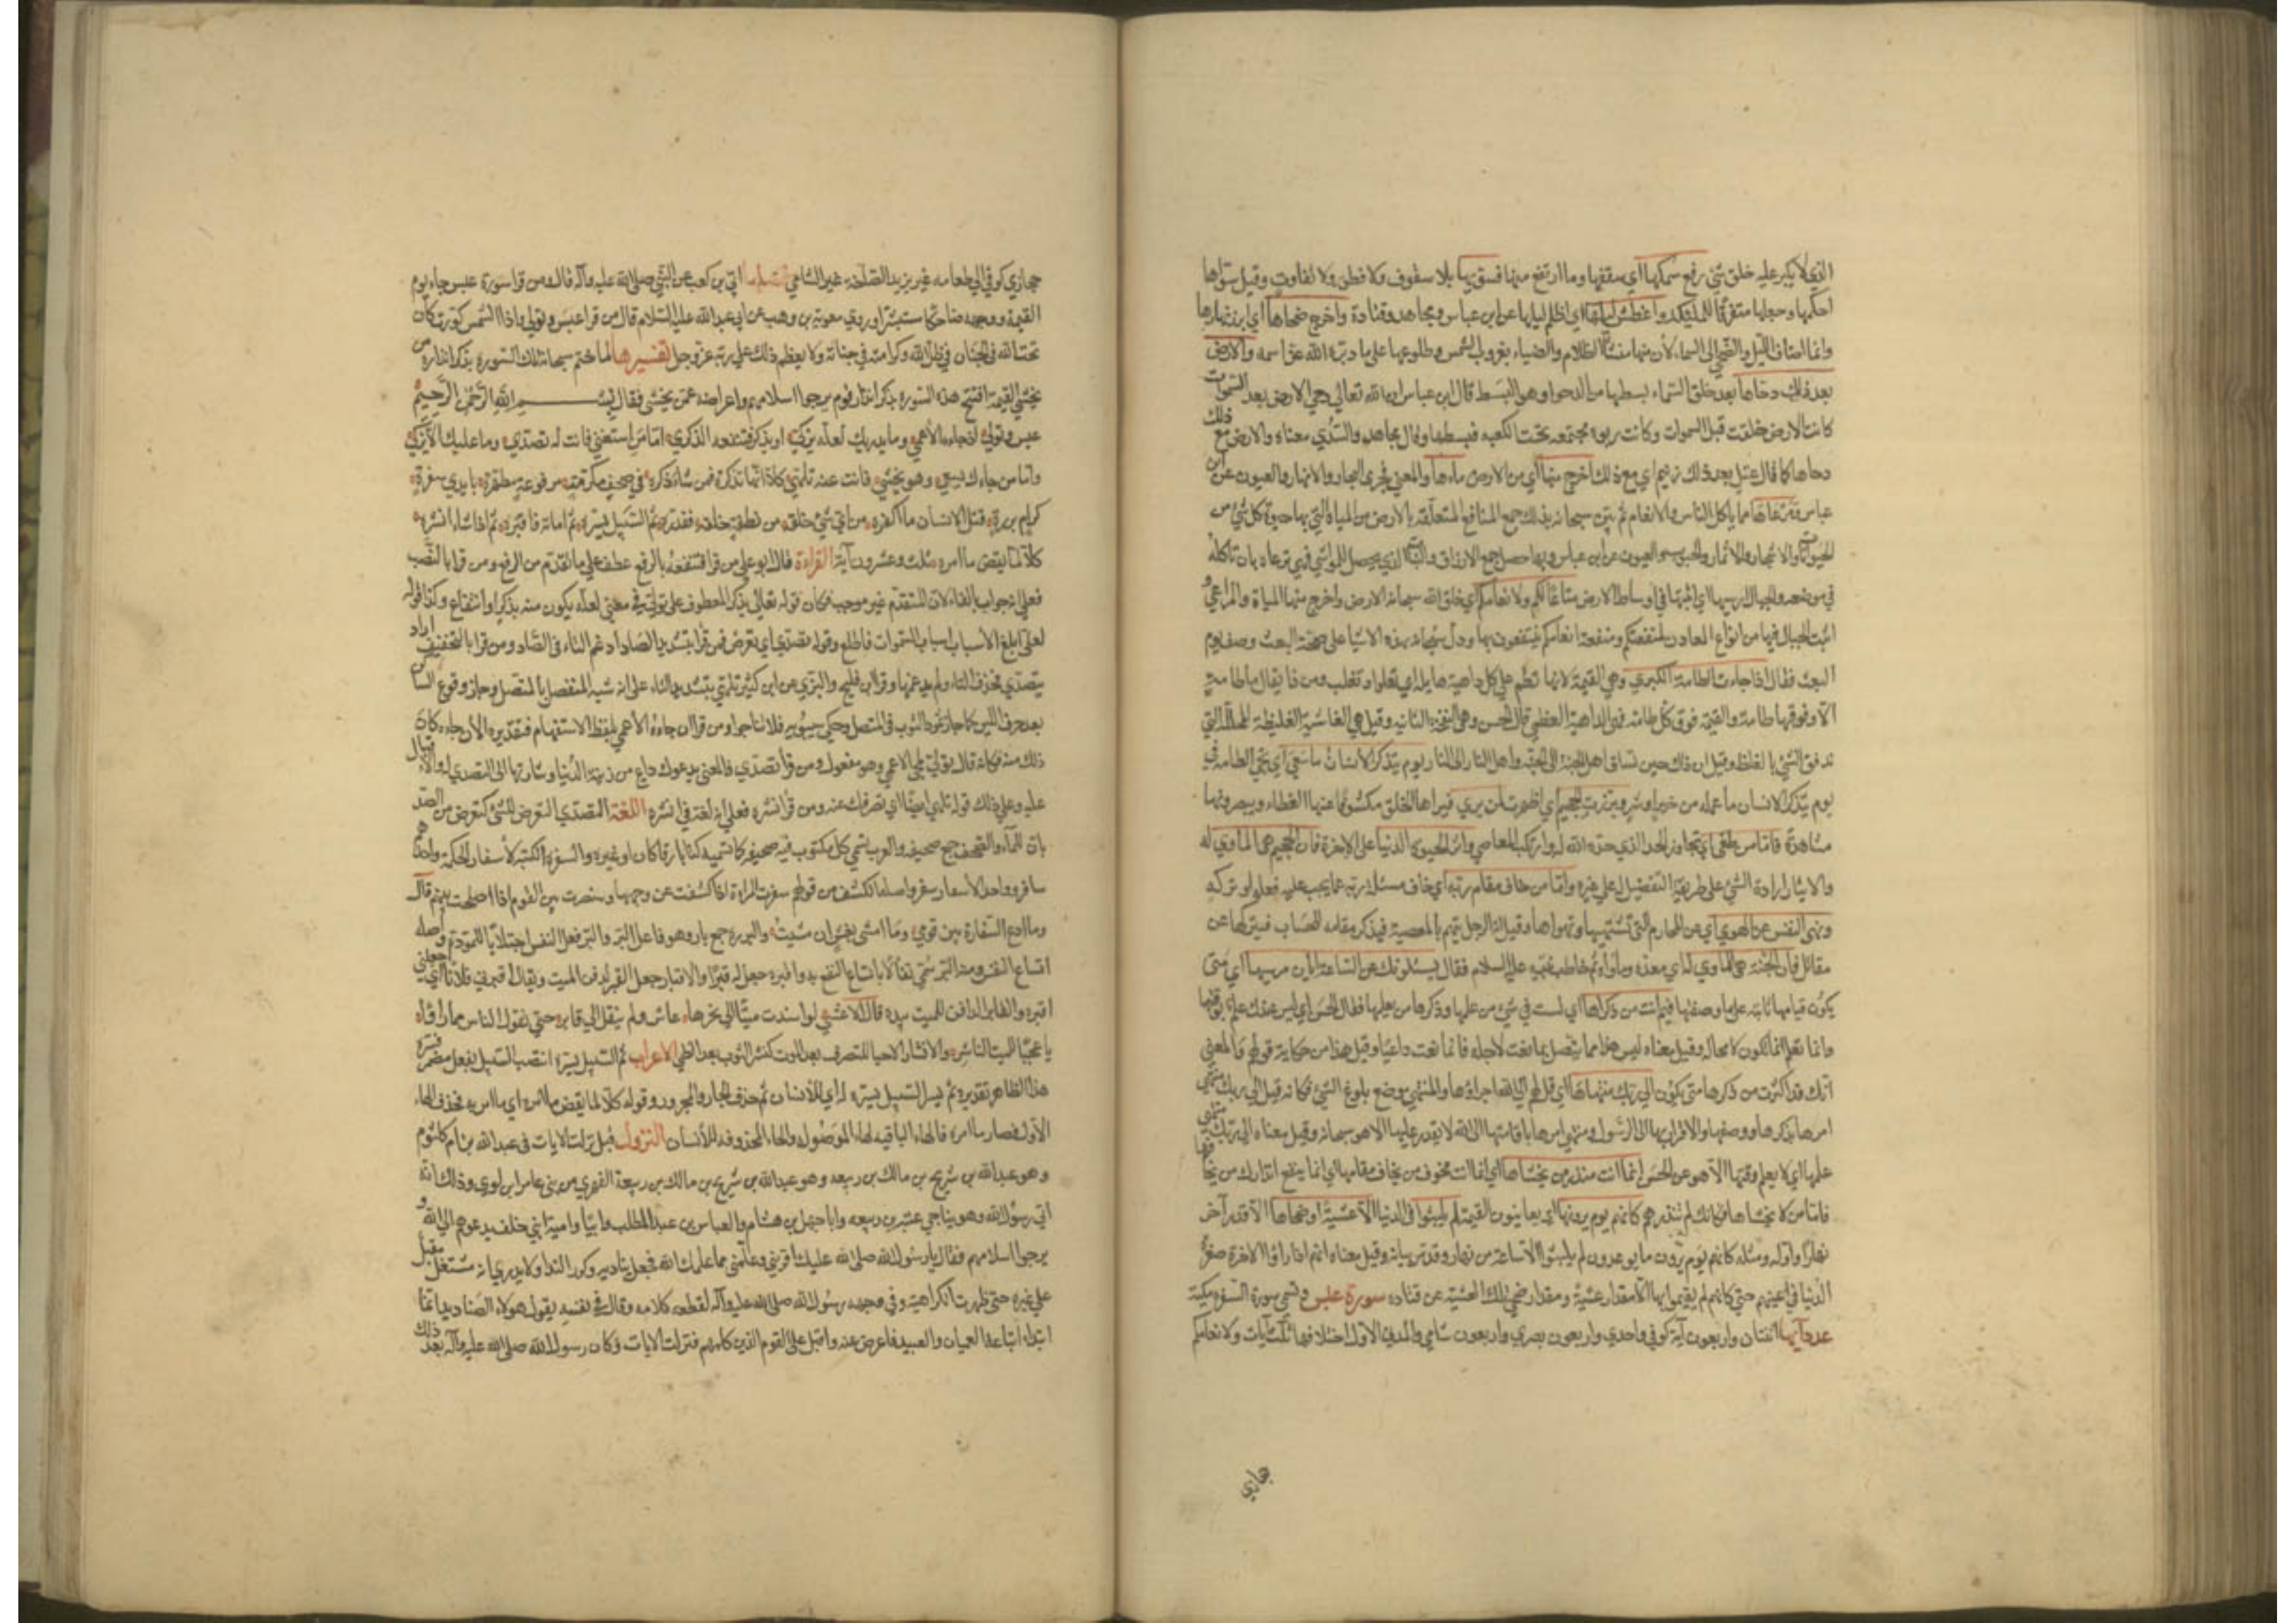 الذي لا يكبر عليه خلق شئ رفع سمكها اي سقفها وما ارتفع منها فسويها بلا سقوف ولا فطور ولا تفاوت وقيل سواها
احكمها وجعلها متفرقا للملئكة واغطش ليلها اي اظلم ليلها عن ابن عباس ومجاهد وقتادة واخرج ضحاها اي ابرز نهارها
وانما اضاف الليل والضحي الى السماء لان منها منشأ الظلام والضياء بغروب الشمس وطلوعها على ما دبره الله عز اسمه والارض
بعد ذلك دحاها بعد خلق السماء بسطها من الدحو وهو البسط قال ابن عباس ان الله تعالي دحي الارض بعد السموات
كانت الارض خلقت قبل السموات وكانت ربوة مجتمعه تحت الكعبه فبسطها وقال مجاهد والسدي معناه والارض مع ذلك
دحاها كما قال عتل بعد ذلك زنيم اي مع ذلك اخرج منها اي من الارض ماءها والمعني فجري البحار والانهار والعيون عن ابن
عباس ومرعاها مما ياكل الناس والانعام ثم بين سبحانه بذلك جميع المنافع المتعلقه بالارض من المياه التي بها حيوة كل شئ من
الحيوانات والاشجار والاثمار والحبوب والعيون عن ابن عباس وبها حصل جميع الارزاق والنبات الذي يصلح للمواشي فهي ترعاه بان تاكله
في موضعه والجبال ارسيها اي اثبتها في اوساط الارض متاعا لكم ولانعامكم اي خلق الله سبحانه الارض واخرج منها المياه والمراعي و
اثبت الجبال فيها من انواع المعادن لمنفعتكم ومنفعة انعامكم فينتفعون بها ودل سبحانه بهذه الاشيا على صحة البعث وصف يوم
البعث فقال اذا جاءت الطامة الكبري وهي القيمة لانها تطم علي كل داهية هايله اي تعلوا وتغلب ومن ذا يقال ما طامة
الا وفوقها طامة والقيمة فوق كل طامه فهي الداهية العظمي قال الحسن وهي النفخة الثانيه وقيل هي الغاشية الغليظة المجللة التي
تدفق الشئ بالغلظ وقيل ان ذلك حين تساق اهل الجنة الى الجنة واهل النار الى النار يوم يتذكر الانسان ما سعي اي تجئ الطامه في
يوم يتذكر الانسان ما عمله من خير او شر وبرزت الجحيم اي اظهرت لمن يري فيراها الخلق مكشوفا عنها الغطاء ويبصرونها
مشاهدة فاما من طغي اي تجاوز الحد الذي حده الله له وارتكب المعاصي واثر الحيوة الدنيا على الاخرة فان الجحيم هي الماوي له
والايثار ارادة الشئ على طريقة التفضيل له على غيره واما من خاف مقام ربه اي خاف مسئلة ربه عما يجب عليه فعله او تركه
ونهي النفس عن الهوي اي عن المحارم التي تشتهيها وتهواها وقيل ان الرجل يهم بالمعصية فيذكر مقامه للحساب فيتركها عن
مقاتل فان الجنة هي الماوي له اي معده وماواه ثم خاطب نبيه عليه السلام فقال يسئلونك عن الساعة ايان مرسيها اي متى
يكون قيامها ثابته على ما وصفتها فيم انت من ذكراها اي لست في شئ من علمها وذكرها من يعلمها فقال الحسن اي ليس عندك علم بوقتها
وانما تعلم انها تكون لا محالة وقيل معناه ليس هذا مما يتصل بما بعثت لاجله فانما بعثت داعيا وقيل هذا من حكاية قولهم والمعني
انك قد اكثرت من ذكرها متي يكون الي ربك منتهاها اي قل لهم الي الله اجراؤها والمنتهي موضع بلوغ الشئ فكانه قيل الي ربك منتهي
امرها بذكرها ووصفها والاقرار بها الى الرسول ومنتهي امرها باقامتها الى الله لا يقدر عليها الا هو سبحانه وقيل معناه الي ربك منتهي
علمها اي لا يعلم وقتها الا هو عن الحسن انما انت منذر من يخشاها اي انما انت مخوف من يخاف مقامها اي انما ينفع انذارك من يخافها
فاما من لا يخشاها فكانك لم تنذرهم كانهم يوم يرونها اي يعاينون القيمة لم يلبثوا في الدنيا الا عشية او ضحاها الا قدر آخر
نهار او اوله ومثله كانهم يوم يرون ما يوعدون لم يلبثوا الا ساعة من نهار وقد مر بيانه وقيل معناه انهم اذا راوا الاخرة صغر
الدنيا في اعينهم حتي كانهم لم يقيموا بها الا مقدار عشية ومقدار ضحي تلك العشية عن قتاده سورة عبس وتسمي سورة السفره مكية
عدد آيها اثنتان واربعون آية كوفي واحدي واربعون بصري واربعون شامي والمدني الاول اختلافها ثلث آيات ولانعامكم
جازي
حجازي كوفي الي طعامه غير يزيد الصاخة غير الشامي فضلها ابي بن كعب عن النبي صلى الله عليه وآله قال ومن قرا سورة عبس جاء يوم
القيمة ووجهه ضاحكا مستبشرا وروي معوية بن وهب عن ابي عبد الله عليه السلام قال من قرا عبس وتولي واذا الشمس كورت كان
تحت الله في الجنان في ظل الله وكرامته في جنانه ولا يعظم ذلك على ربه عز وجل تفسيرها لما ختم سبحانه تلك السورة بذكر انذاره من
يخشي القيمة افتتح هذه السورة بذكر انذار قوم يرجوا اسلامهم واعراضه عمن يخشي فقال بسم الله الرحمن الرحيم
عبس وتولي ان جاءه الاعمي وما يدريك لعله يزكي او يذكر فتنفعه الذكري اما من استغني فانت له تصدي وما عليك الا يزكي
واما من جاءك يسعي وهو يخشي فانت عنه تلهي كلا انها تذكرة فمن شاء ذكره في صحف مكرمة مرفوعة مطهرة بايدي سفرة
كرام بررة قتل الانسان ما اكفره من اي شئ خلقه من نطفة خلقه فقدره ثم السبيل يسره ثم اماته فاقبره ثم اذا شاء انشره
كلا لما يقض ما امره ثلث وعشرون آية القراءة قال ابو علي من قرا فتنفعه بالرفع عطفه علي ما تقدم من الرفع ومن قرا بالنصب
فعلي انه جواب بالفاء لان المتقدم غير موجب فكان قوله تعالي يذكر المعطوف على يزكي في معني لعله يكون منه تذكر او انتفاع وكذا قوله
لعلي ابلغ الاسباب اسباب السموات فاطلع وقوله تصدي اي تعرض فمن قرا بتشديد الصاد ادغم التاء في الصاد ومن قرا بالتخفيف اراد
يتصدي فحذف التاء ولم يدغمها وقرا ابن فليح والبزي عن ابن كثير تلهي بتشديد التاء علي انه شبه المنفصل بالمتصل وجاز وقوع الساكن
بعد حرف اللين كما جاز تمود الثوب في المتصل وحكي سيبويه فلا تناجوا ومن قرا ان جاءه الاعمي بلفظ الاستفهام فتقديره الان جاءه كان
ذلك منه فكانه قال تولي لمجئ الاعمي وهو مفعول ومن قرا تصدي فالمعني يدعوك داع من زينة الدنيا وشارتها الى التصدي له والاقبال
عليه وعلي ذلك قوله تلهي ايضا اي تصرفك عنه ومن قرا نشره فعلي انه لغة في انشره اللغة التصدي التعرض للشئ كتعرض الصديان
للماء والصحف جمع صحيفه والعرب تسمي كل مكتوب فيه صحيفه كما تسميه كتابا رقا كان او غيره والسفرة الكتبة لاسفار الحكمة واحدهم
سافر وواحد الاسفار سفر واصله الكشف من قولهم سفرت المراة اذا كشفت عن وجهها وسفرت بين القوم اذا اصلحت بينهم قال
وما ادع السفارة بين قومي وما امشي بغش ان مشيت والبررة جمع بار وهو فاعل البر والبر فعل النفع اجتلابا للمودة واصله
اتساع النفع ومنه البر سمي تفاؤلا باتساع النفع به واقبره جعل له قبرا والاقبار جعل القبر لدفن الميت ويقال اقبرني فلانا اي اجعلني
اقبره والقابر الدافن للميت بيده قال الاعشي لو اسندت ميتا الي نحرها عاش ولم ينقل الي قابر حتي يقول الناس مما راوا
يا عجبا للميت الناشر والانشار الاحيا للتصرف بعد الموت كنشر الثوب بعد الطي الاعراب ثم السبيل يسره انتصب السبيل بفعل مضمر فسره
هذا الظاهر تقديره ثم يسر السبيل يسره له اي للانسان ثم حذف الجار والمجرور وقوله كلا لما يقض ما امره اي ما امر به فحذف الجار
الاول فصار ما امره فالهاء الباقيه لهاء الموصول والهاء المحذوفه للانسان النزول قيل نزلت الايات في عبد الله بن ام مكتوم
وهو عبد الله بن شريح بن مالك بن ربيعه وهو عبد الله بن شريح بن مالك بن ربيعة الفهري من بني عامر ابن لوي وذلك انه
اتي رسول الله وهو يناجي عتبه بن ربيعه وابا جهل بن هشام والعباس بن عبد المطلب وابيا وامية ابني خلف يدعوهم الي الله و
يرجوا اسلامهم فقال يا رسول الله صلى الله عليك اقرئني وعلمني مما علمك الله فجعل يناديه وكرر الندا ولا يدري انه مشتغل مقبل
علي غيره حتي ظهرت الكراهية في وجهه رسول الله صلى الله عليه وآله لقطعه كلامه وقال في نفسه يقول هولاء الصناديد انما
ابتداء اتباعه العميان والعبيد فاعرض عنه واقبل على القوم الذين كلمهم فنزلت الايات وكان رسول الله صلى الله عليه وآله بعد ذلك